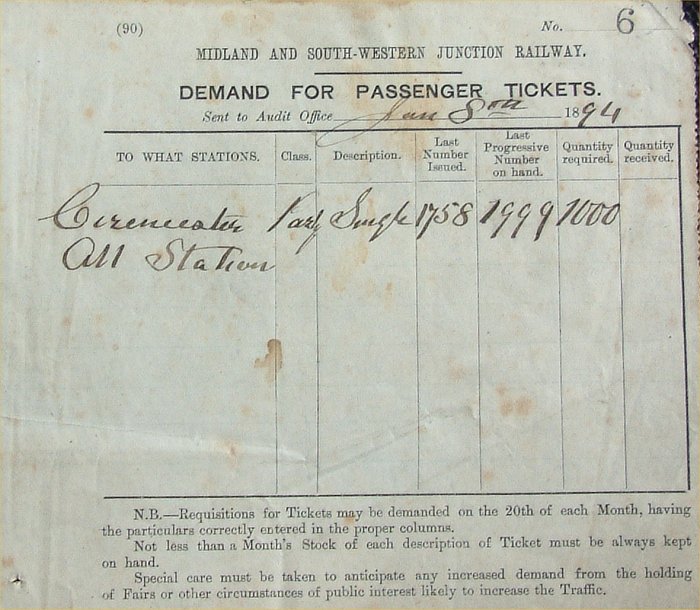 (90)
No. 6
MIDLAND AND SOUTH-WESTERN JUNCTION RAILWAY.
DEMAND FOR PASSENGER TICKETS.
Sent to Audit Office Jan 8th 1894
TO WHAT STATIONS. Class. Description. Last Number Issued. Last Progressive Number on hand. Quantity required. Quantity received.
Cirencester Parly Single 1758 1999 1000
All Station
N.B.—Requisitions for Tickets may be demanded on the 20th of each Month, having
the particulars correctly entered in the proper columns.
Not less than a Month's Stock of each description of Ticket must be always kept
on hand.
Special care must be taken to anticipate any increased demand from the holding
of Fairs or other circumstances of public interest likely to increase the Traffic.